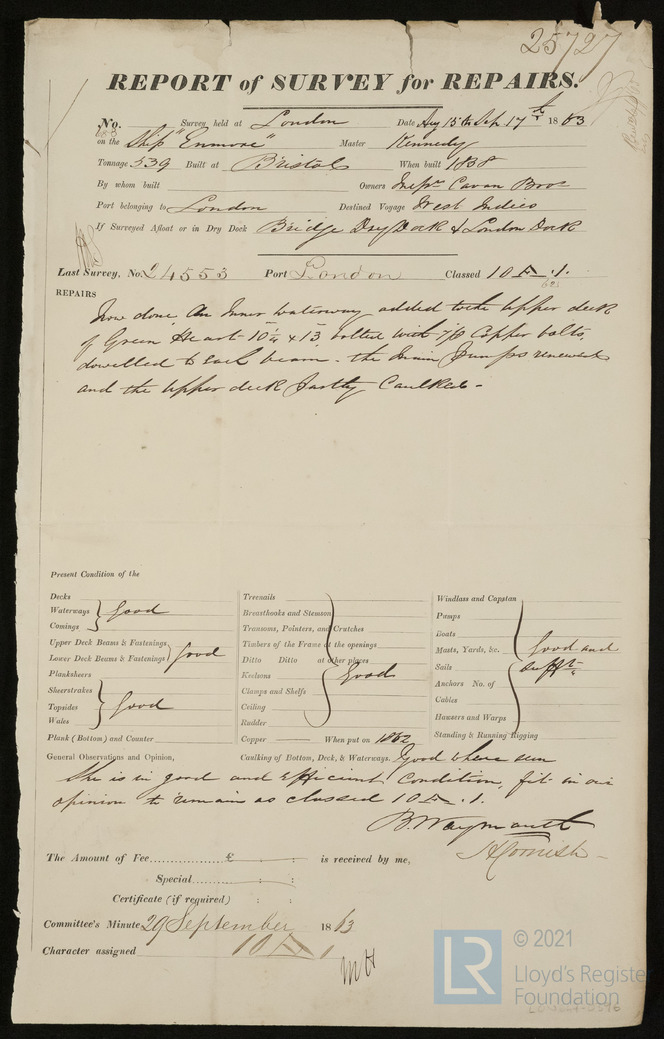 25727
REPORT of SURVEY for REPAIRS.
No. Survey held at London Date Aug 15th Sep. 17th 1863
on the Ship "Enmore" Master Kennedy
Tonnage 539 Built at Bristol When built 1858
By whom built Owners Messrs Cavan Bros
Port belonging to London Destined Voyage West Indies
If Surveyed Afloat or in Dry Dock Bridge Dry Dock & London Dock
Last Survey, No. 24553 Port London Classed 10 A .1.
REPAIRS
Now done, An Inner Waterway added to the Upper deck
of Green Heart 10 1/4 x 13, bolted with 7/8 Copper bolts,
dowelled to each beam - the main Pumps renewed
and the Upper deck partly Caulked -
Present Condition of the
Decks
Waterways
Comings
Good
Upper Deck Beams & Fastenings
Lower Deck Beams & Fastenings
Good
Planksheers
Sheerstrakes
Topsides
Wales
Good
Plank (Bottom) and Counter
Treenails
Breasthooks and Stemson
Transoms, Pointers, and Crutches
Timbers of the Frame at the openings
Ditto Ditto at other places
Keelsons
Clamps and Shelfs
Ceiling
Rudder
Good
Copper When put on 1862
Windlass and Capstan
Pumps
Boats
Masts, Yards, &c.
Sails
Anchors No. of
Cables
Hawsers and Warps
Standing & Running Rigging
Good and
sufft
General Observations and Opinion, Caulking of Bottom, Deck, & Waterways. Good where seen
She is in good and Efficient Condition, fit in our
opinion to remain as classed 10 A .1.
B. Waymouth
H Cornish
The Amount of Fee £ : : is received by me,
Special : :
Certificate (if required) : :
Committee's Minute 29 September 1863
Character assigned 10 A 1
MH
© 2021
LR
Lloyd's Register
Foundation